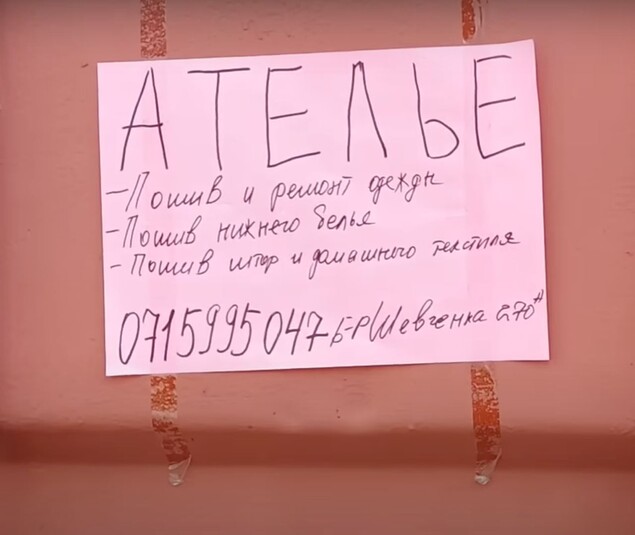 АТЕЛЬЕ
- Пошив и ремонт одежды
- Пошив нижнего белья
- Пошив штор и домашнего текстиля
0715995047 Б-Р Шевченка 270А